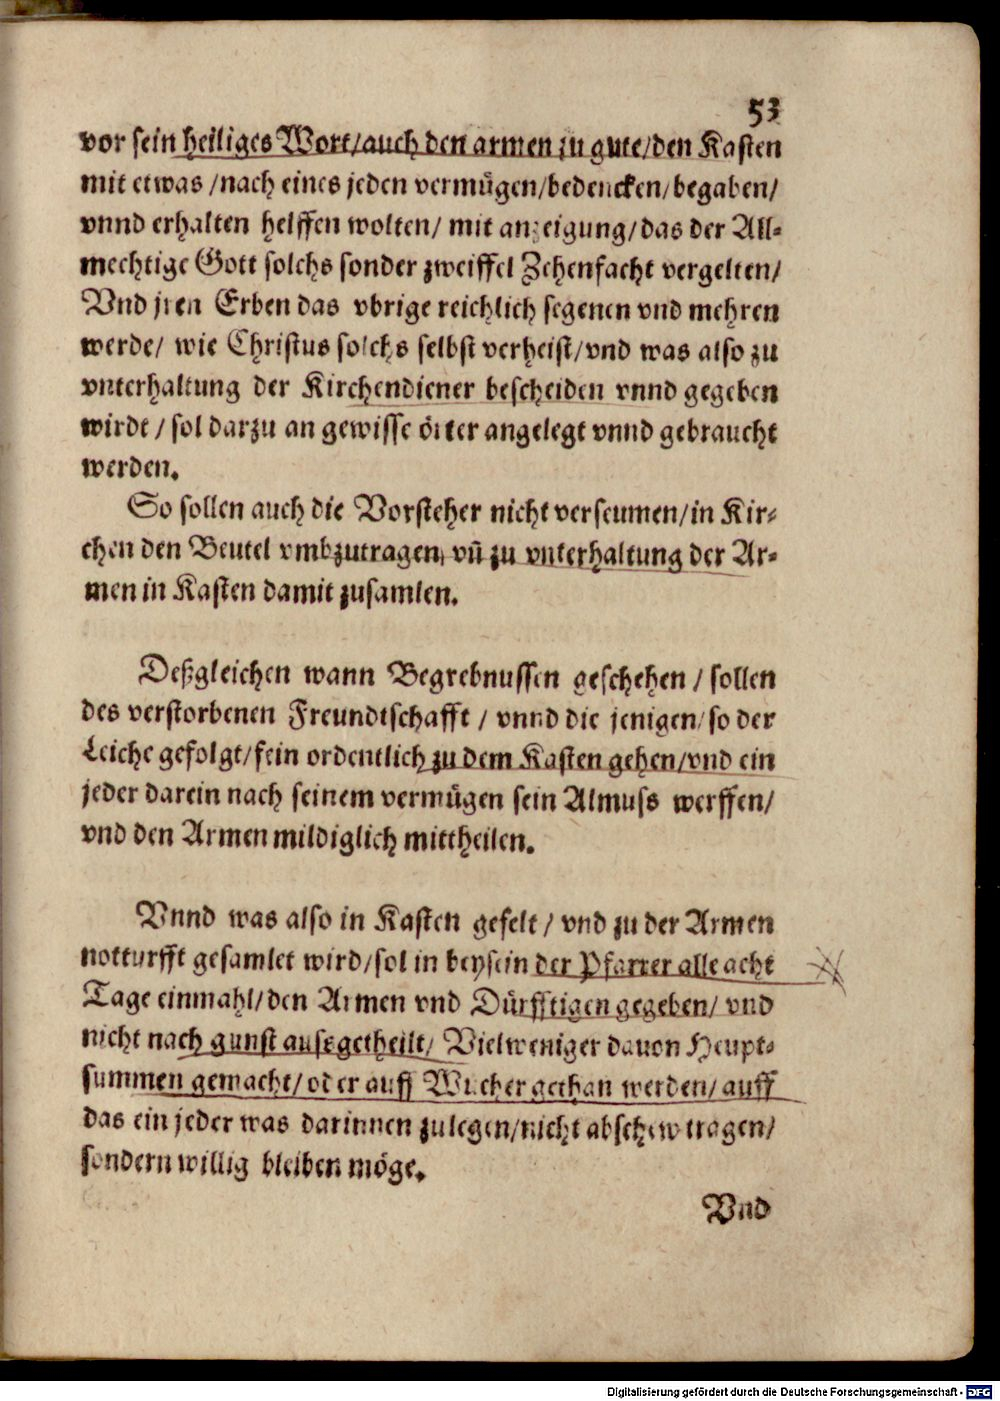 53
vor sein heiliges Wort/auch den armen zu gute/den Kasten
mit etwas /nach eines jeden vermügen/bedencken/begaben/
vnnd erhalten helffen wolten/ mit anzeigung/das der All-
mechtige Gott solchs sonder zweiffel Zehenfacht vergelten/
Vnd jren Erben das vbrige reichlich segenen vnd mehren
werde/ wie Christus solchs selbst verheist/vnd was also zu
vnterhaltung der Kirchendiener bescheiden vnnd gegeben
wirdt / sol darzu an gewisse örter angelegt vnnd gebraucht
werden.
So sollen auch die Vorsteher nicht verseumen/in Kir-
chen den Beutel vmbzutragen, vñ zu vnterhaltung der Ar-
men in Kasten damit zusamlen.
Deßgleichen wann Begrebnussen geschehen / sollen
des verstorbenen Freundtschafft / vnnd die jenigen/so der
Leiche gefolgt/fein ordentlich zu dem Kasten gehen/vnd ein
jeder darein nach seinem vermügen sein Almuss werffen/
vnd den Armen mildiglich mittheilen.
Vnnd was also in Kasten gefelt / vnd zu der Armen
notturfft gesamlet wird/sol in beysein der Pfarrer alle acht
Tage einmahl/den Armen vnd Dürfftigen gegeben/ vnd
nicht nach gunst aussgetheilt/ Vielweniger dauon Heupt-
summen gemacht/oder auff Wucher gethan werden/auff
das ein jeder was darinnen zulegen/nicht abschew tragen/
sondern willig bleiben möge.
Vnd
Digitalisierung gefördert durch die Deutsche Forschungsgemeinschaft - DFG